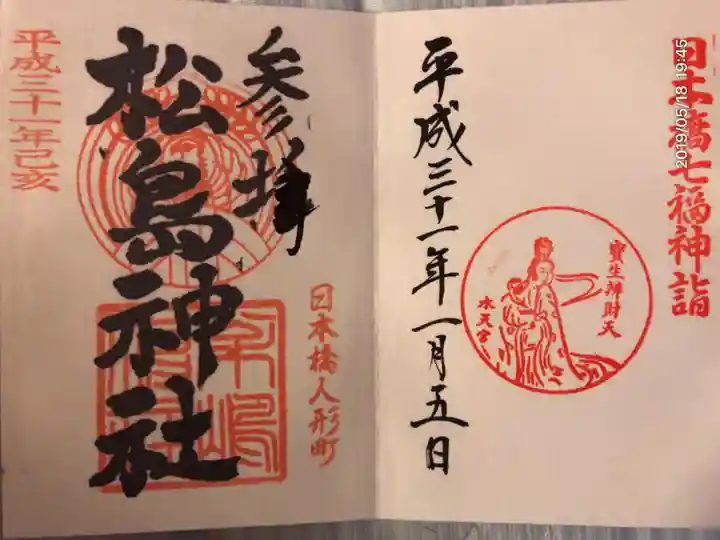 日本橋七福神詣
寶生辨財天
水天宮
平成三十一年一月五日
参拝
松島神社
日本橋人形町
平成三十一年己亥
2019/05/18 19:45